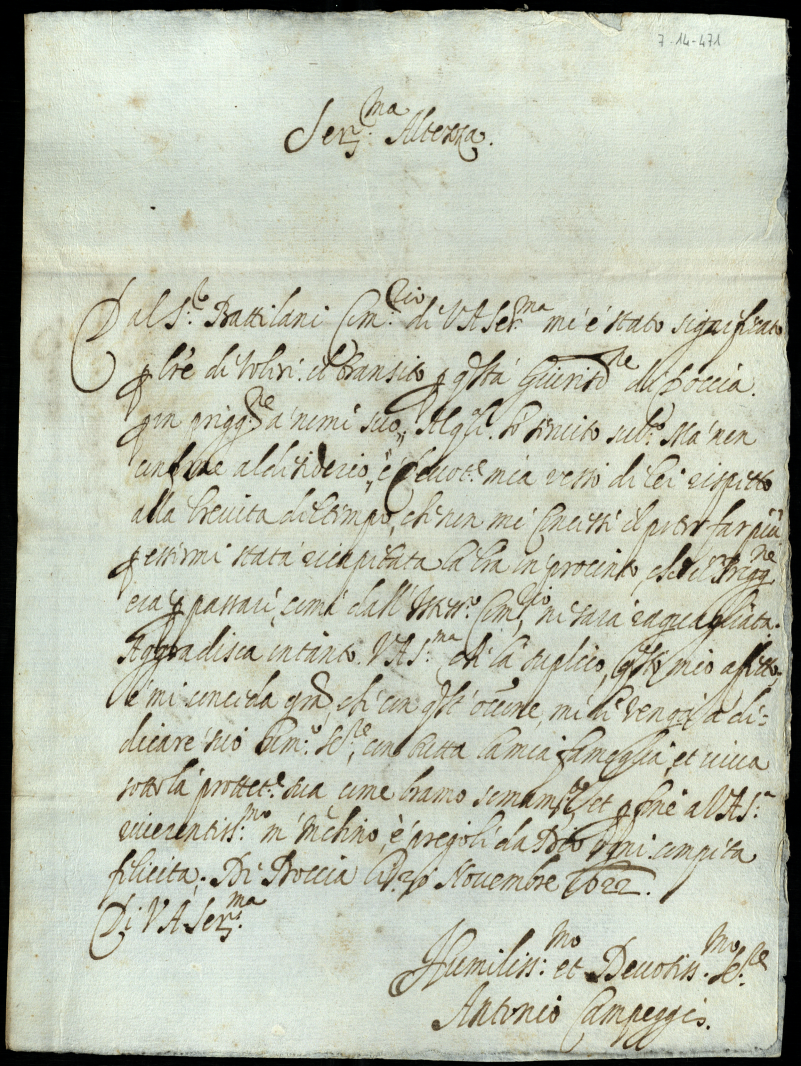 7-14-471
Ser.ma Altezza.
Dal S.r Battilani Com.rio di V A Ser.ma mi è stato significato
p l're di volvi: il transito p q'sta Giurisd.ne di Roccia.
p in prigg.ne a nomi suo, Al q'l hò
confor'e al desiderio, è Devot.e mia verso di lei rispetto
alla brevita del tempo, che non mi concesse il poter far più
p essermi stata ricapitata la l'ra in procinto che il Prigg.ne
era p passari, come dall' istesso Com.rio ne sarà raguagliata.
Aggradisca intanto V A S.ma che la suplico, q'sto mio affetto
è mi conceda gra, che con q'st' oc'ne, me li venghi a de=
dicare suo hum.o Se.re, con tutta la mia fameglia, et viva
sotto la protet.e sua come bramo et p fine a V A S.ma
riverentiss.mo m' inchino, è pregoli da Dio ogni compita
felicita; Di Roccia li 26 Novembre 1622.
Di V A Ser.ma
Humiliss.mo et Devotiss.mo Se.re
Antonio Campeggio.